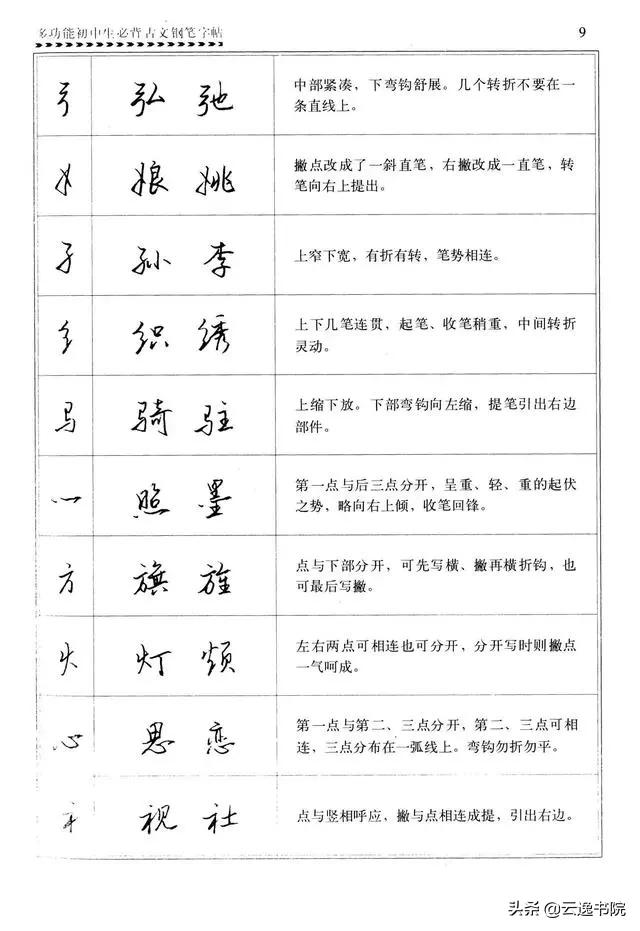 多功能初中生必背古文钢笔字帖
9
弓 弘 弛 中部紧凑，下弯钩舒展。几个转折不要在一
条直线上。
女 娘 姚 撇点改成了一斜直笔，右撇改成一直笔，转
笔向右上提出。
孑 孙 李 上窄下宽，有折有转，笔势相连。
纟 织 绣 上下几笔连贯，起笔、收笔稍重，中间转折
灵动。
马 骑 驻 上缩下放。下部弯钩向左缩，提笔引出右边
部件。
灬 照 墨 第一点与后三点分开，呈重、轻、重的起伏
之势，略向右上倾，收笔回锋。
方 旗 旌 点与下部分开，可先写横、撇再横折钩，也
可最后写撇。
火 灯 烦 左右两点可相连也可分开，分开写时则撇点
一气呵成。
心 思 恋 第一点与第二、三点分开，第二、三点可相
连，三点分布在一弧线上。弯钩勿折勿平。
礻 视 社 点与竖相呼应，撇与点相连成提，引出右边。
头条 @云逸书院